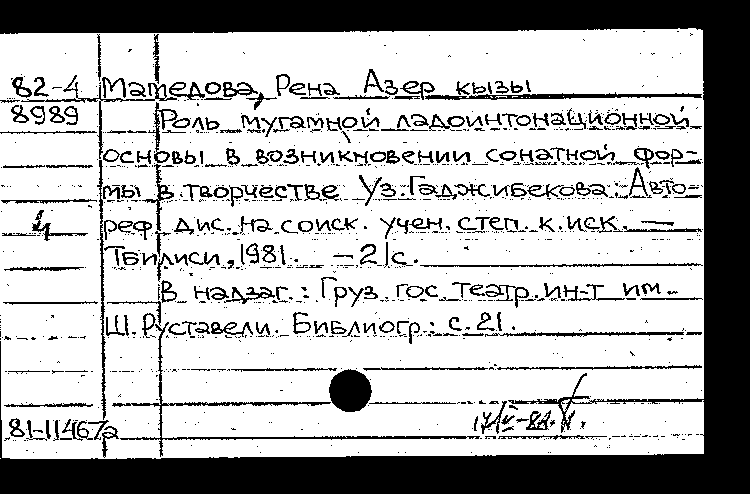 82-4 Мамедова, Рена Азер кызы
8989 Роль мугамной ладоинтонационной
основы в возникновении сонатной фор-
мы в творчестве Уз. Гаджибекова: Авто-
реф. дис. на соиск. учен. степ. к. иск. —
Тбилиси, 1981. — 21с.
В надзаг.: Груз. гос. театр. ин-т им.
Ш. Руставели. Библиогр.: с. 21.
81-11467а